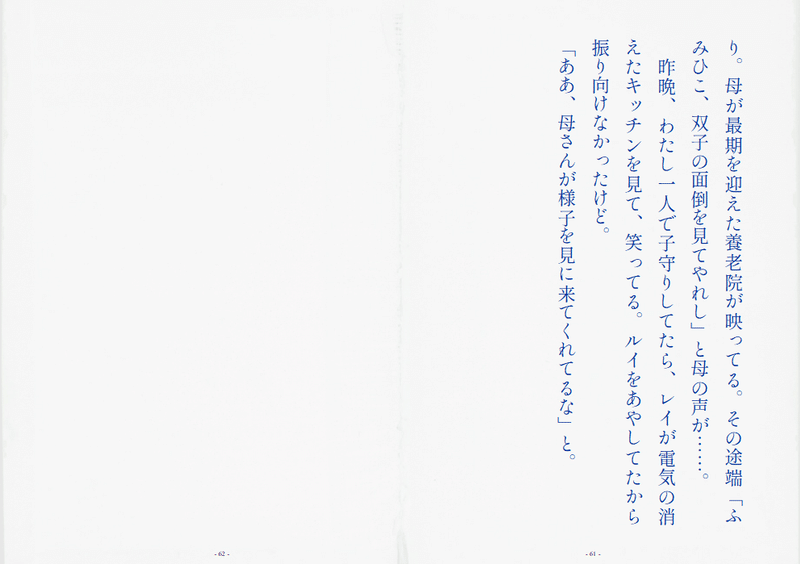 り。母が最期を迎えた養老院が映ってる。その途端「ふ
みひこ、双子の面倒を見てやれし」と母の声が……。
昨晩、わたし一人で子守りしてたら、レイが電気の消
えたキッチンを見て、笑ってる。ルイをあやしてたから
振り向けなかったけど。
「ああ、母さんが様子を見に来てくれてるな」と。
- 61 -
- 62 -